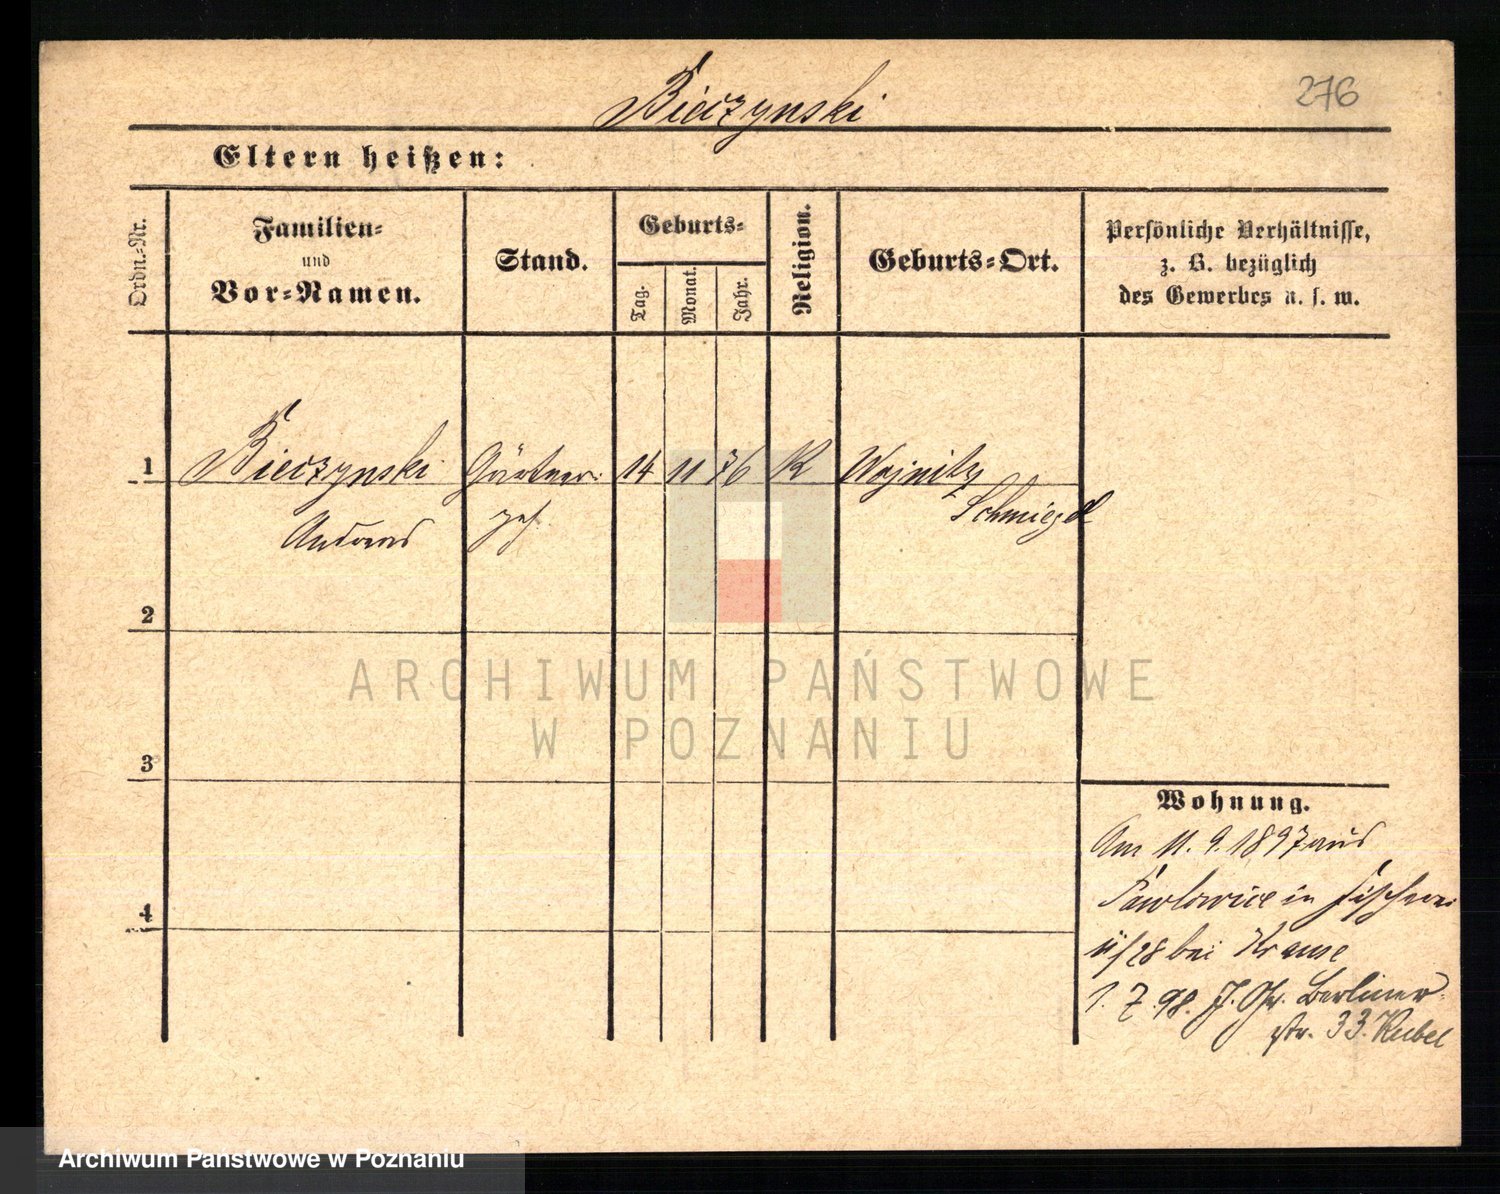 Bieczynski
276
Eltern heißen:
Ordn.-Nr.
Familien-
und
Vor-Namen.
Stand.
Geburts-
Tag.
Monat.
Jahr.
Religion.
Geburts-Ort.
Persönliche Verhältnisse,
z. B. bezüglich
des Gewerbes u. s. w.
1 Bieczynski Gärtner 14 11 76 K Wojnitz
Schmiegel
Andreas
2
3
4
Wohnung.
Am 11. 9. 1897 aus
Pawlowice in Fischerei
28 bei Krause
1. 7. 98. Berliner-
str. 33. Kubel
ARCHIWUM PAŃSTWOWE
W POZNANIU
Archiwum Państwowe w Poznaniu